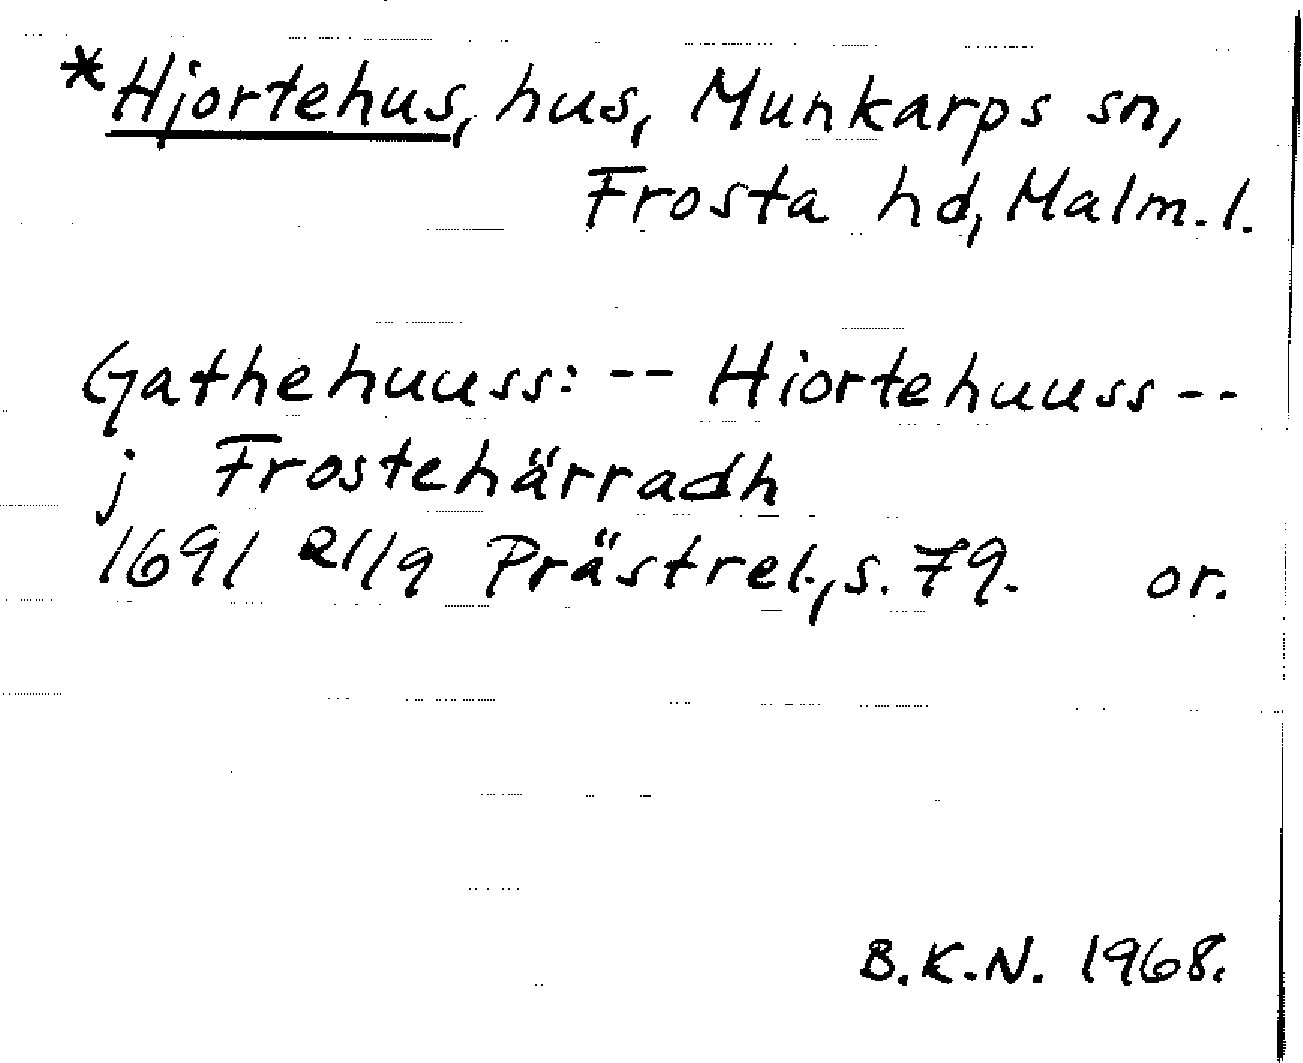 *Hjortehus, hus, Munkarps sn,
Frosta hd, Malm. l.
Gathehuuss: -- Hiortehuuss --
j Frostehärradh
1691 21/9 Prästrel., s. 79. or.
B.K.N. 1968.